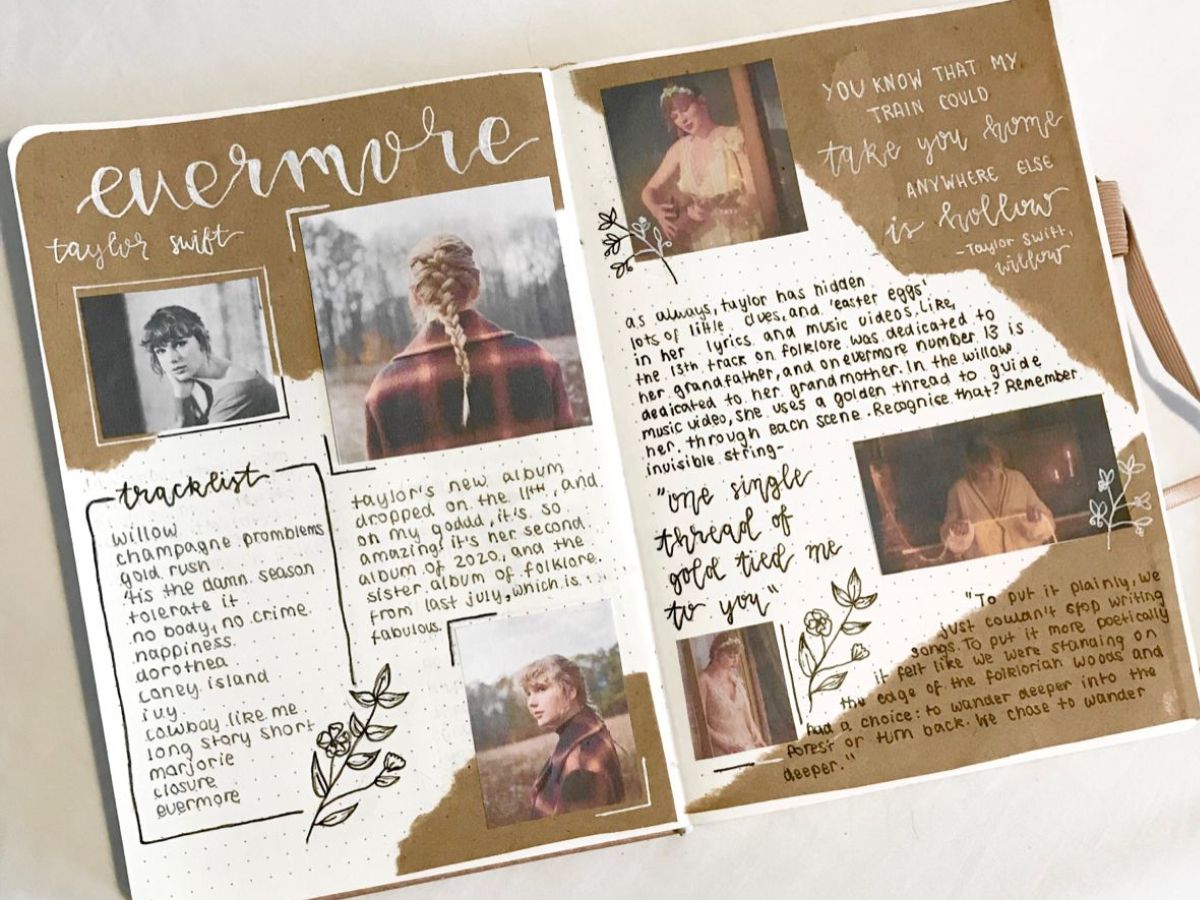 evermore
taylor swift
tracklist
willow
champagne promblems
gold rush
'tis the damn season
tolerate it
no body, no crime
happiness
dorothea
coney island
ivy
cowboy like me
long story short
marjorie
closure
evermore
taylor's new album
dropped on the 11th, and
oh my goddd, it's so
amazing! it's her second
album of 2020, and the
sister album of folklore
from last july, which is
fabulous.
YOU KNOW THAT MY
TRAIN COULD
take you home
ANYWHERE ELSE
is hollow
-Taylor Swift,
willow
as always, taylor has hidden
lots of little clues, and 'easter eggs'
in her lyrics and music videos. Like,
the 13th track on folklore was dedicated to
her grandfather, and on evermore number 13 is
dedicated to her grandmother. In the willow
music video, she uses a golden thread to guide
her through each scene. Recognise that? Remember
invisible string-
"one single
thread of
gold tied me
to you"
"To put it plainly, we
just couldn't stop writing
songs. To put it more poetically
it felt like we were standing on
the edge of the folklorian woods and
had a choice: to wander deeper into the
forest or turn back. We chose to wander
deeper."